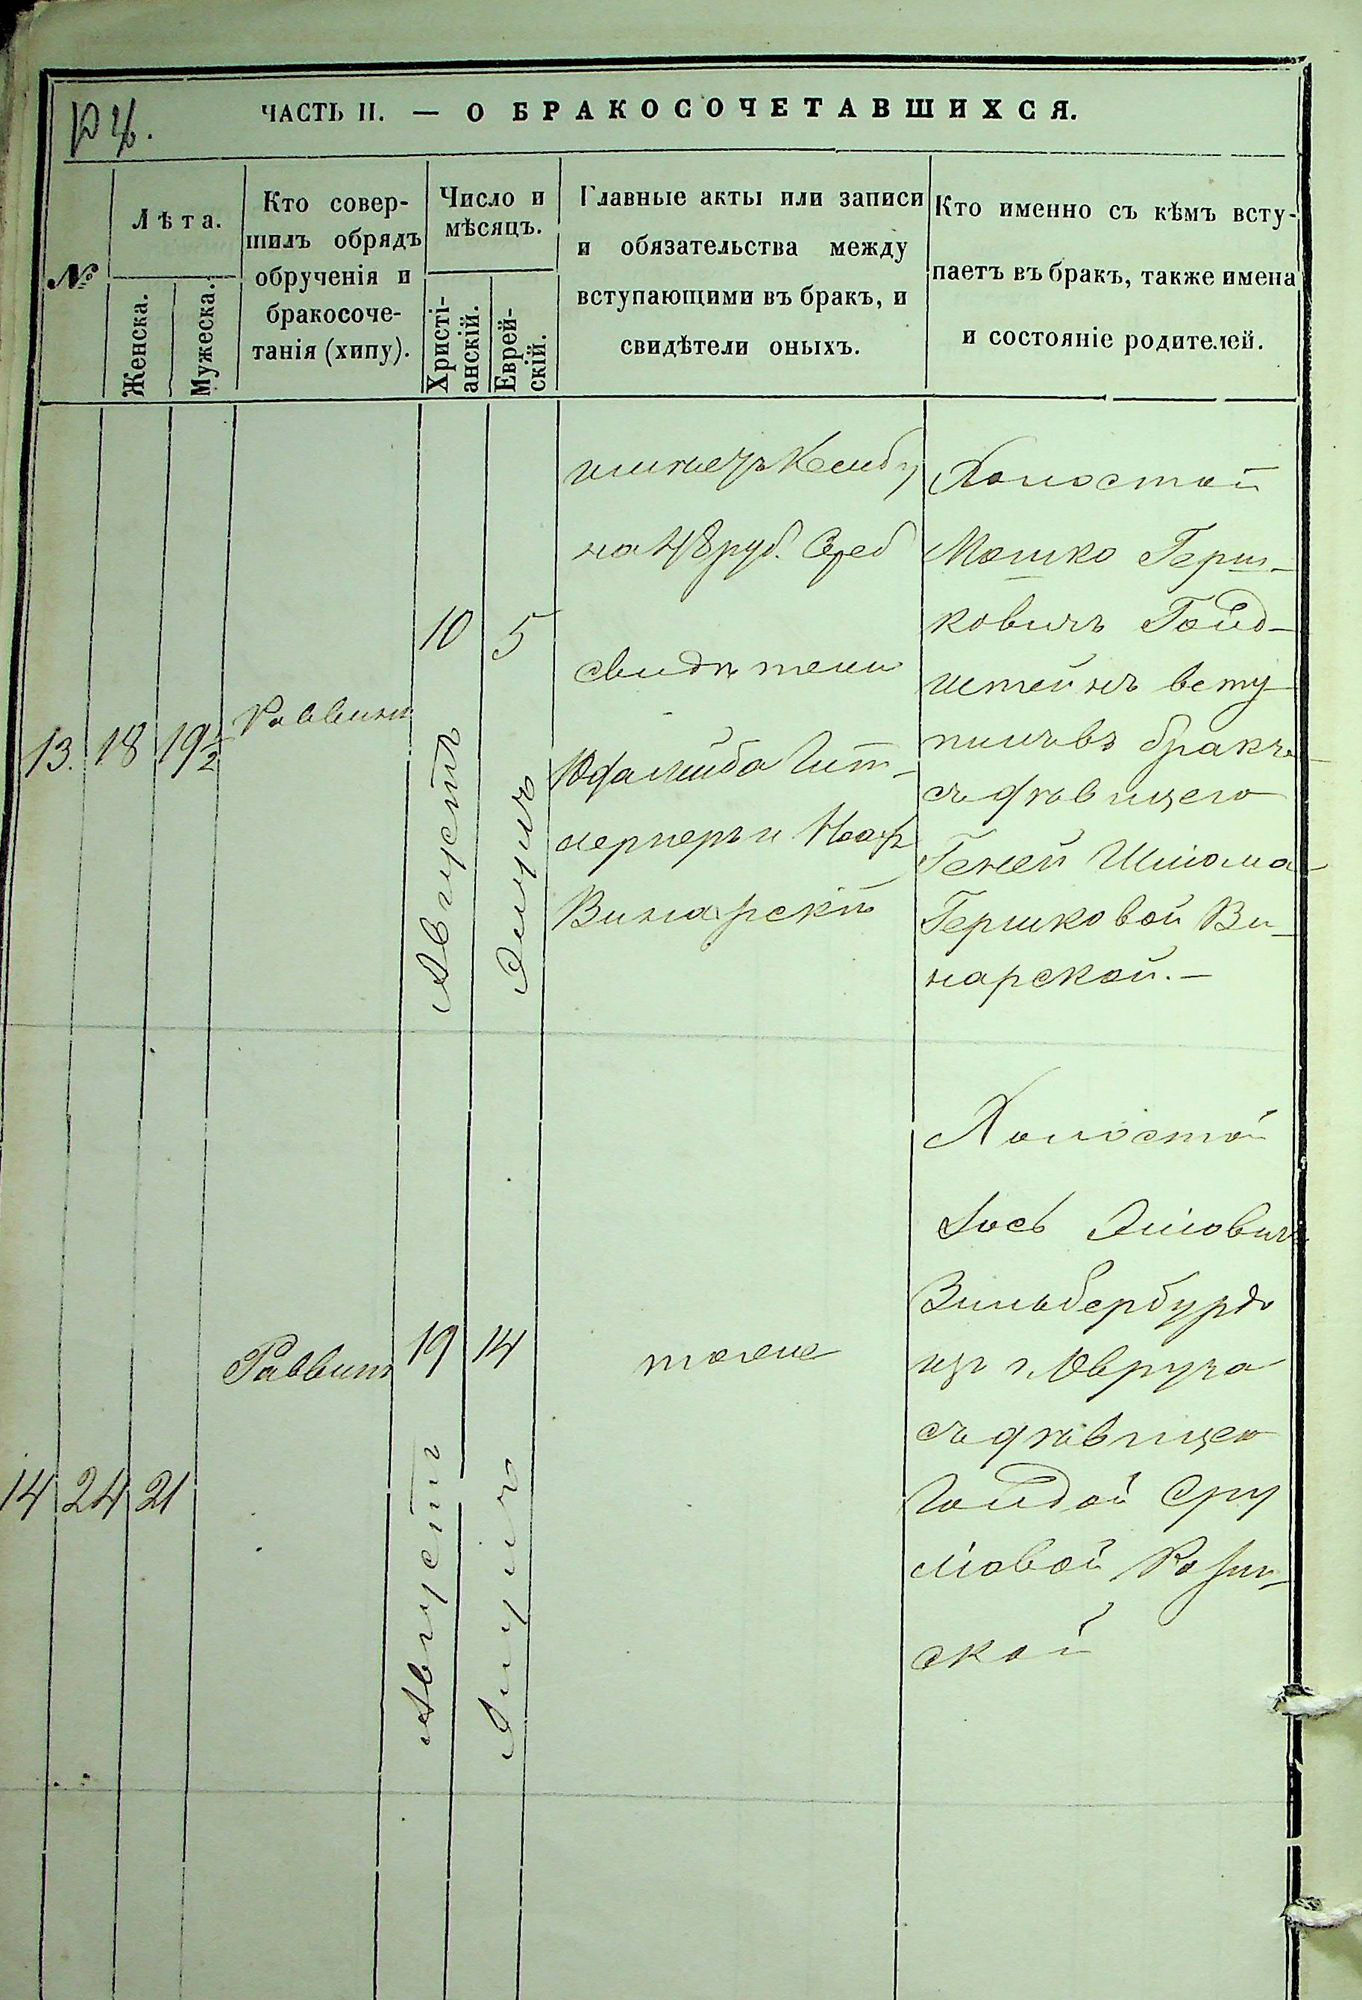 ЧАСТЬ II. — О БРАКОСОЧЕТАВШИХСЯ.
№
Лѣта.
Женска.
Мужеска.
Кто совер-
шилъ обрядъ
обрученія и
бракосоче-
танія (хипу).
Число и
мѣсяцъ.
Христі-
анскій.
Еврей-
скій.
Главные акты или записи
и обязательства между
вступающими въ бракъ, и
свидѣтели оныхъ.
Кто именно съ кѣмъ всту-
паетъ въ бракъ, также имена
и состояніе родителей.
13. 18 19½
Раввинъ
10 Августъ
5
на 48 руб. Сереб
свидѣтели
Винарскій
Холостой
Мошко Герш-
ковичъ Голд-
штейнъ всту
пилъ въ бракъ
съ дѣвицею
Геней Шліома
Гершковой Ви-
нарской. —
14 24 21
Раввинъ
19 Августъ
14
тоже
Холостой
Іось
Вильбербурдъ
изъ г. Овруча
съ дѣвицею
Голдой Сру
ліовой
ской